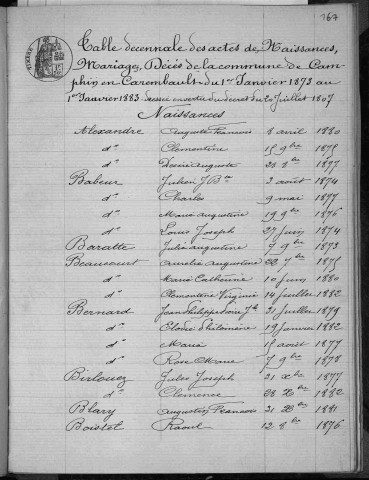 167
Table décennale des actes de Naissances,
Mariages, Décès de la commune de Cam-
phin en Carembault du 1er Janvier 1873 au
1er Janvier 1883 dressée en vertu du décret du 20 Juillet 1807
Naissances
Alexandre Auguste Francois 8 avril 1880
d° Clementine 15 9bre 1875
d° Désiré Auguste 28 8bre 1877
Babeur Julien J Bte 2 août 1874
d° Charles 9 mai 1877
d° Marie augustine 19 9bre 1876
d° Louis Joseph 27 juin 1874
Baratte Julie augustine 9 9bre 1873
Beaucourt Aurelie Augustine 1875
d° Marie Catherine 10 juin 1880
d° Clementine Virginie 14 juillet 1882
Bernard Jean Philippe Jh 21 juillet 1879
d° Elodie Philomène 19 janvier 1882
d° Maria 15 août 1877
d° Rose Marie 7 9bre 1878
Birlouez Jules Joseph 21 Xbre 1877
d° Clemence 28 Xbre 1882
Blary Augustin Francois 21 Xbre 1881
Boistel Raoul 12 8bre 1876